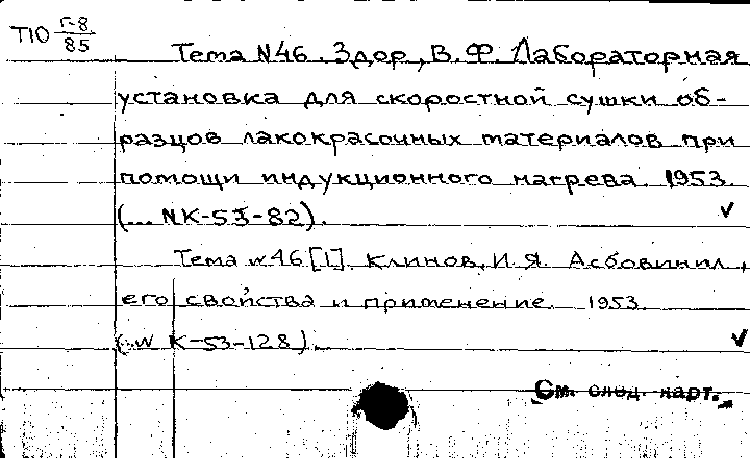 Т10 Г-8/85
Тема N46. Здор, В. Ф. Лабораторная
установка для скоростной сушки об-
разцов лакокрасочных материалов при
помощи индукционного нагрева. 1953.
(... NК-53-82). ✓
Тема N46[1]. Клинов, И. Я. Асбовинил,
его свойства и применение. 1953.
(...N К-53-128). ✓
См. след. карт.